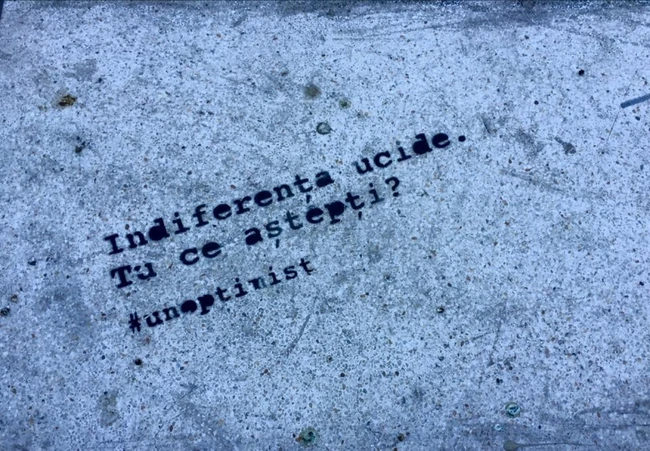 Indiferența ucide.
Tu ce aștepți?
#unoptimist